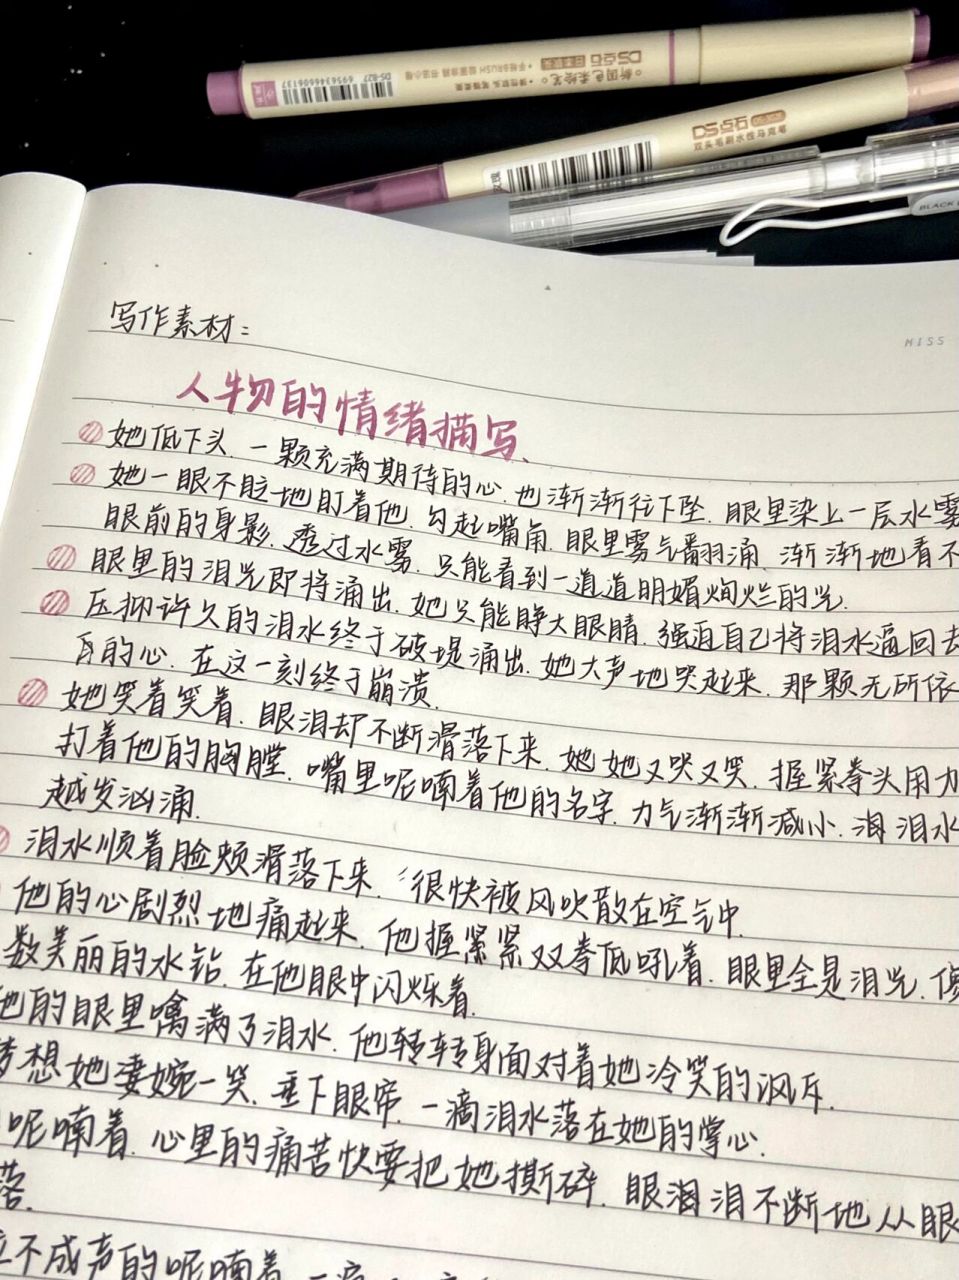 6956346606137
DS-827
手帐BRUSH
DS点石
新国色柔绘笔
DS点石
双头毛刷水性马克笔
BLACK
MISS
写作素材：
人物的情绪描写、
她低下头、一颗充满期待的心、也渐渐往下坠、眼里染上一层水雾
她一眼不眨地盯着他、勾起嘴角、眼里雾气翻涌、渐渐地看不
眼前的身影、透过水雾、只能看到一道道明媚绚烂的光、
眼里的泪光即将涌出、她只能睁大眼睛、强迫自己将泪水逼回去
压抑许久的泪水终于破堤涌出、她大声地哭起来、那颗无所依
的心、在这一刻终于崩溃、
她笑着笑着、眼泪却不断滑落下来、她她又哭又笑、握紧拳头用力
打着他的胸膛、嘴里呢喃着他的名字、力气渐渐减小、泪泪水
越发汹涌、
泪水顺着脸颊滑落下来、很快被风吹散在空气中、
他的心剧烈地痛起来、他握紧紧双拳低吼着、眼里全是泪光、
数美丽的水钻、在他眼中闪烁着、
他的眼里噙满了泪水、他转转身面对着她冷笑的讽斥、
梦想她凄婉一笑、垂下眼帘、一滴泪水落在她的掌心、
呢喃着、心里的痛苦快要把她撕碎、眼泪泪不断地从眼
落、
不成声的呢喃着、一滴